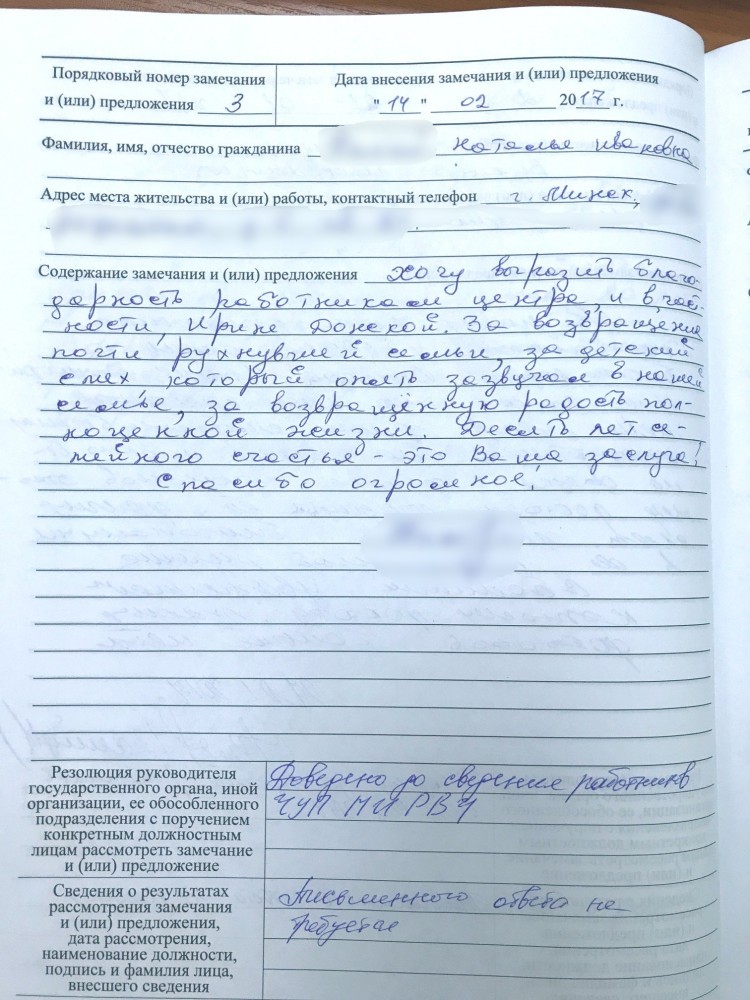 Порядковый номер замечания
и (или) предложения 3
Дата внесения замечания и (или) предложения
"14" 02 2017 г.
Фамилия, имя, отчество гражданина Наталья Ивановна
Адрес места жительства и (или) работы, контактный телефон г. Минск,
Содержание замечания и (или) предложения Хочу выразить благо-
дарность работникам центра, и в част-
ности, Ирине Донской. За возвращение
почти рухнувшей семьи, за детский
смех который опять зазвучал в нашей
семье, за возвращённую радость пол-
ноценной жизни. Десять лет се-
мейного счастья - это Ваша заслуга!
Спасибо огромное!
Резолюция руководителя
государственного органа, иной
организации, ее обособленного
подразделения с поручением
конкретным должностным
лицам рассмотреть замечание
и (или) предложение
Доведено до сведения работников
ЧУП МИРВЧ
Сведения о результатах
рассмотрения замечания
и (или) предложения,
дата рассмотрения,
наименование должности,
подпись и фамилия лица,
внесшего сведения
Письменного ответа не
требуется